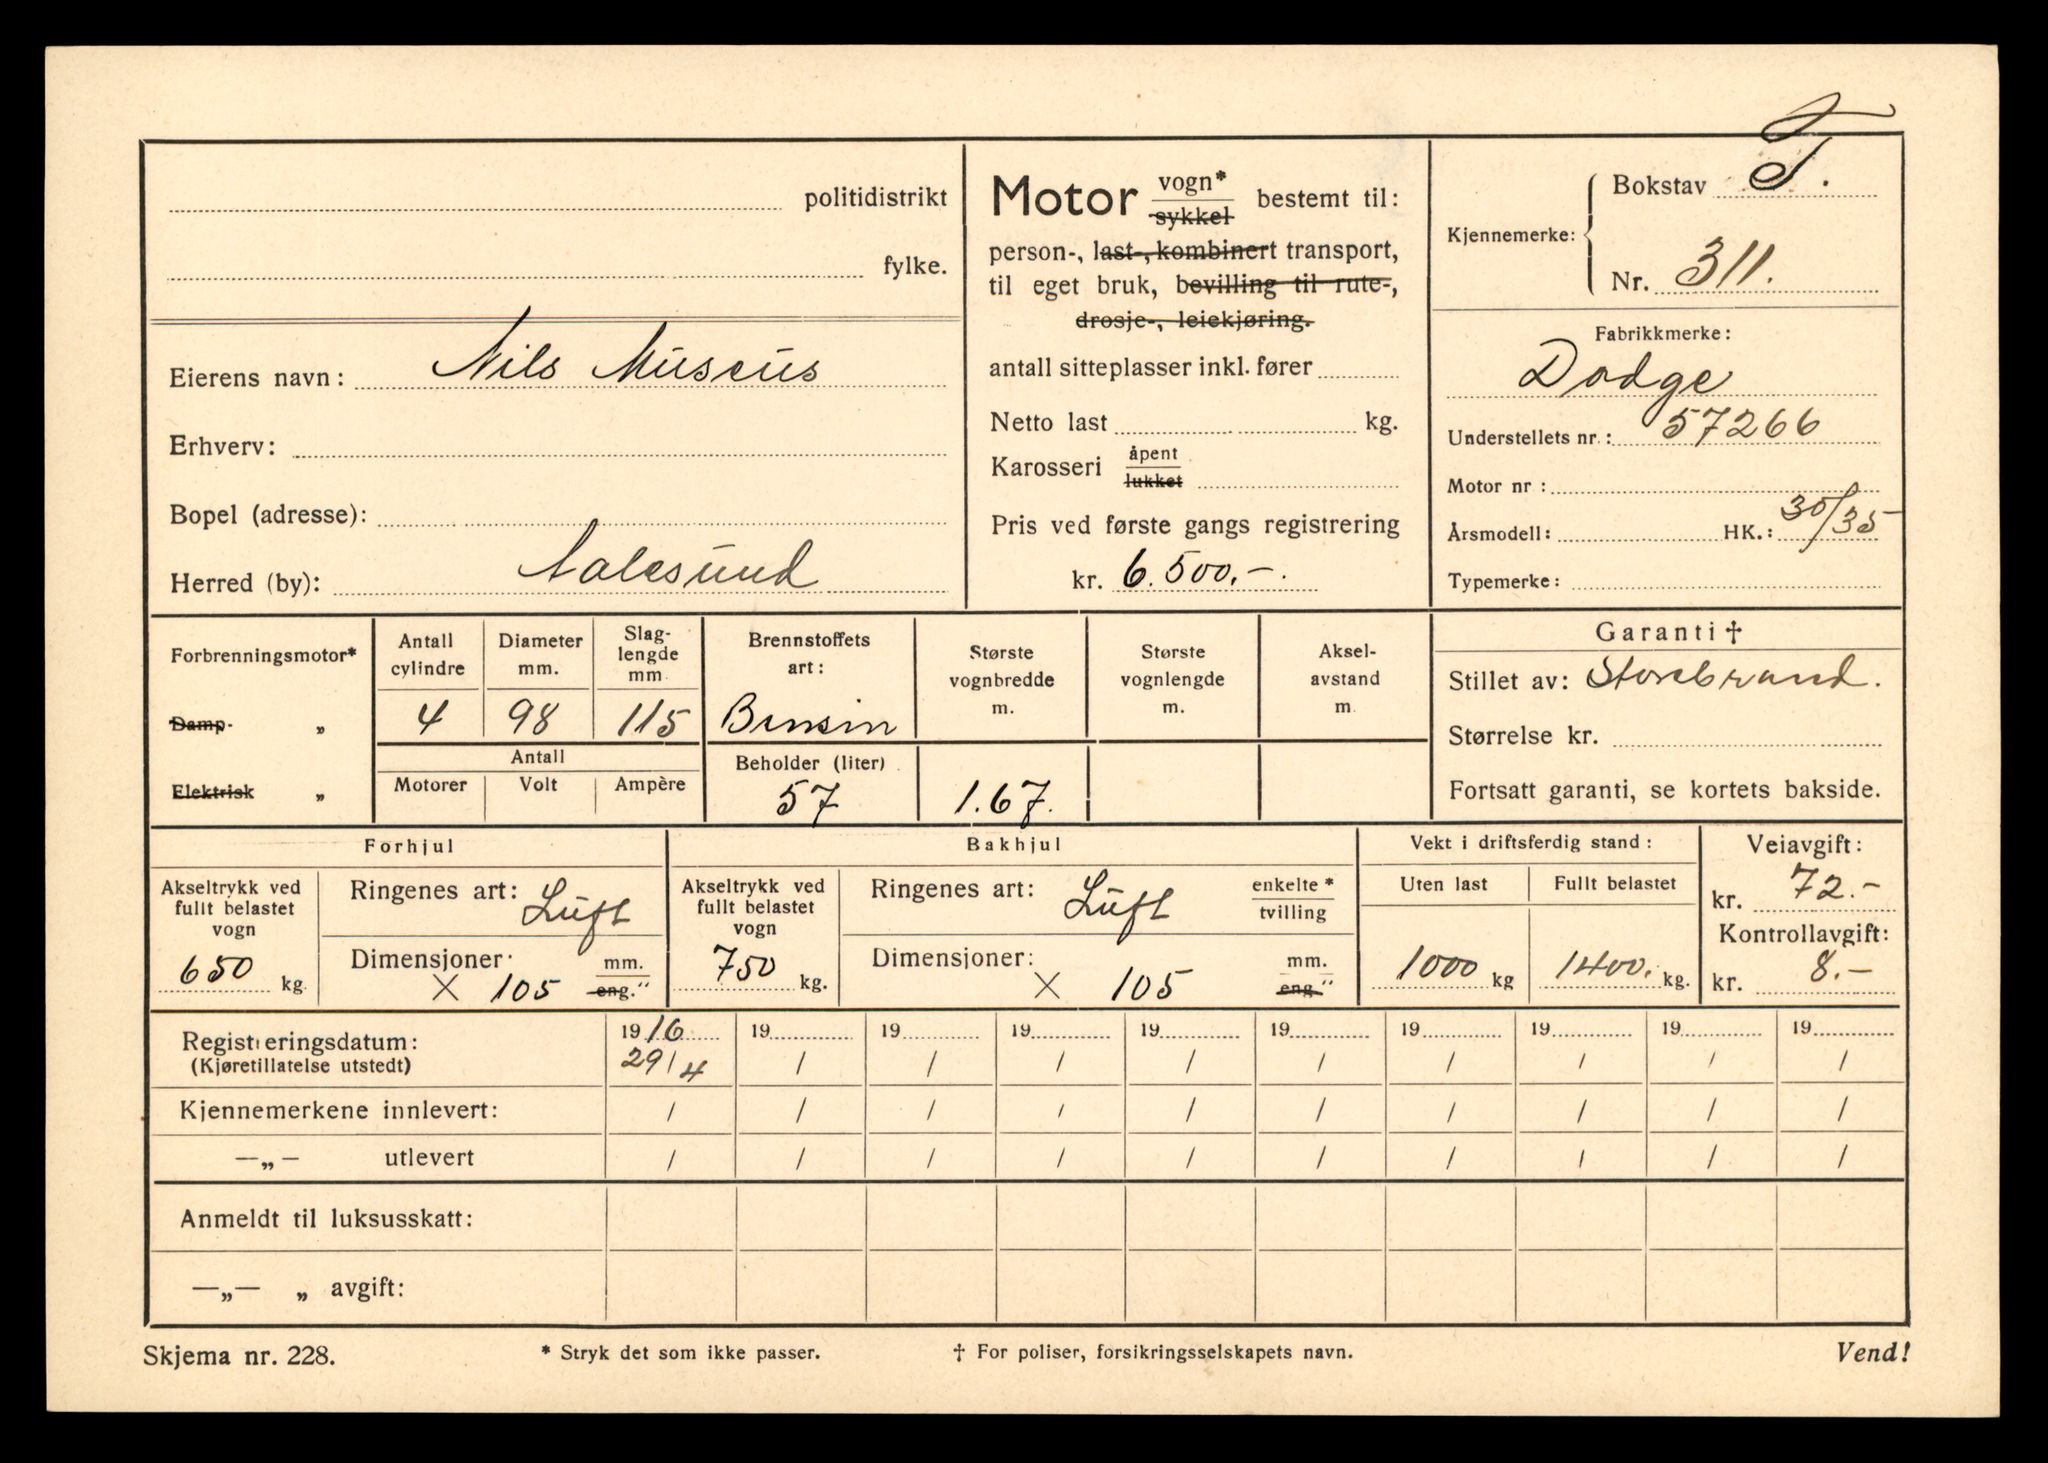 politidistrikt
fylke.
Eierens navn: Nils Muscus
Erhverv:
Bopel (adresse):
Herred (by): Aalesund
Motor vogn* sykkel bestemt til:
person-, last-, kombinert transport,
til eget bruk, bevilling til rute-,
drosje-, leiekjøring.
antall sitteplasser inkl. fører
Netto last kg.
Karosseri åpent lukket
Pris ved første gangs registrering
kr. 6.500.-
Kjennemerke: Bokstav T.
Nr. 311.
Fabrikkmerke:
Dodge
Understellets nr.: 57266
Motor nr :
Årsmodell: HK.: 30/35
Typemerke:
Forbrenningsmotor*
Damp- „
Elektrisk „
Antall cylindre
4
Diameter mm.
98
Slag-
lengde
mm
115
Antall
Motorer Volt Ampère
Brennstoffets
art:
Bensin
Beholder (liter)
57
Største
vognbredde
m.
1.67.
Største
vognlengde
m.
Aksel-
avstand
m
Garanti †
Stillet av: Storebrand.
Størrelse kr.
Fortsatt garanti, se kortets bakside.
Forhjul
Akseltrykk ved
fullt belastet
vogn
650 kg.
Ringenes art: Luft
Dimensjoner: × 105 mm. eng.“
Bakhjul
Akseltrykk ved
fullt belastet
vogn
750 kg.
Ringenes art: Luft enkelte* tvilling
Dimensjoner: × 105 mm. eng“
Vekt i driftsferdig stand:
Uten last Fullt belastet
1000 kg 1400. kg.
Veiavgift:
kr. 72.-
Kontrollavgift:
kr. 8.-
Registreringsdatum: 1916 19 19 19 19 19 19 19 19 19
(Kjøretillatelse utstedt) 29/4 / / / / / / / / /
Kjennemerkene innlevert: / / / / / / / / / /
—„— utlevert / / / / / / / / / /
Anmeldt til luksusskatt:
—„— „ avgift:
Skjema nr. 228. * Stryk det som ikke passer. † For poliser, forsikringsselskapets navn. Vend!